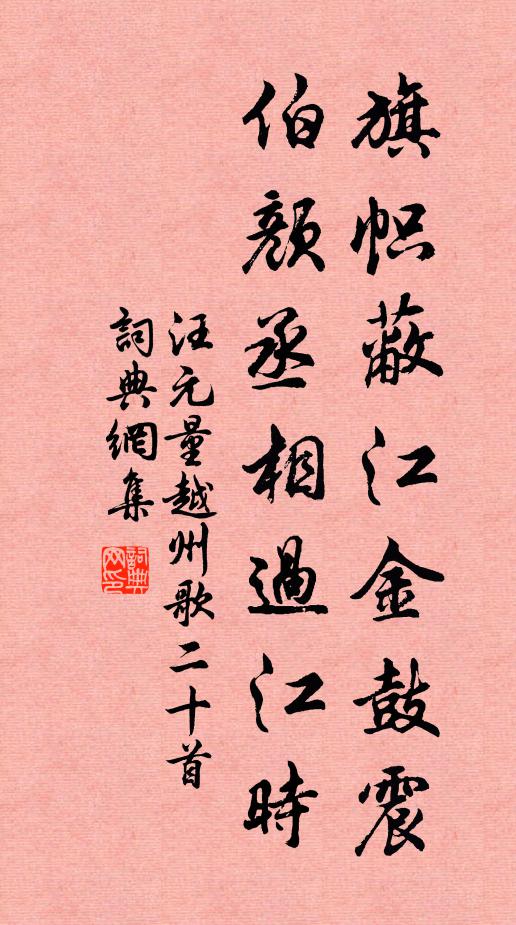 旗帜蔽江金鼓震
伯颜丞相過江時
汪元量越州歌二十首
詞典網集
詞典网印